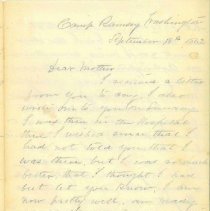 Camp Ramsey Washington
September 18th 1862
Dear Mother
I received a letter
from you to day I also
wrote one to you on Sunday
I was then in the Hospital
and I wished since that I
had not told you that I
was there, but I was so much
better that I thought I had
best let you know, I am
now pretty well, am ready